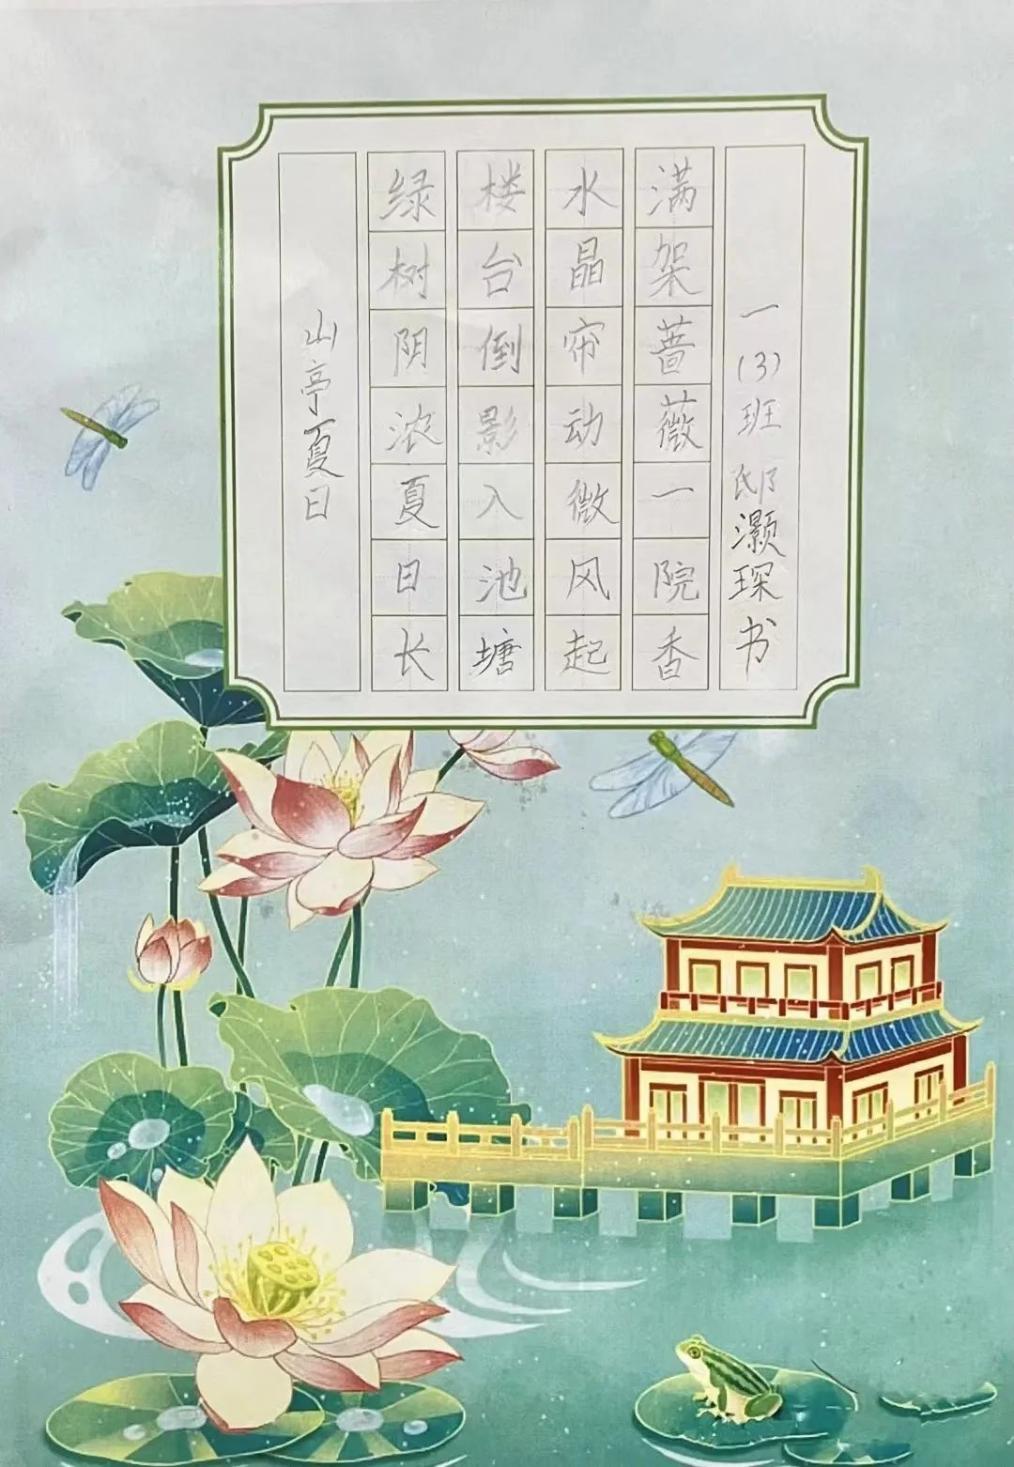 山亭夏日
绿树阴浓夏日长
楼台倒影入池塘
水晶帘动微风起
满架蔷薇一院香
一(3)班 邸灏琛书